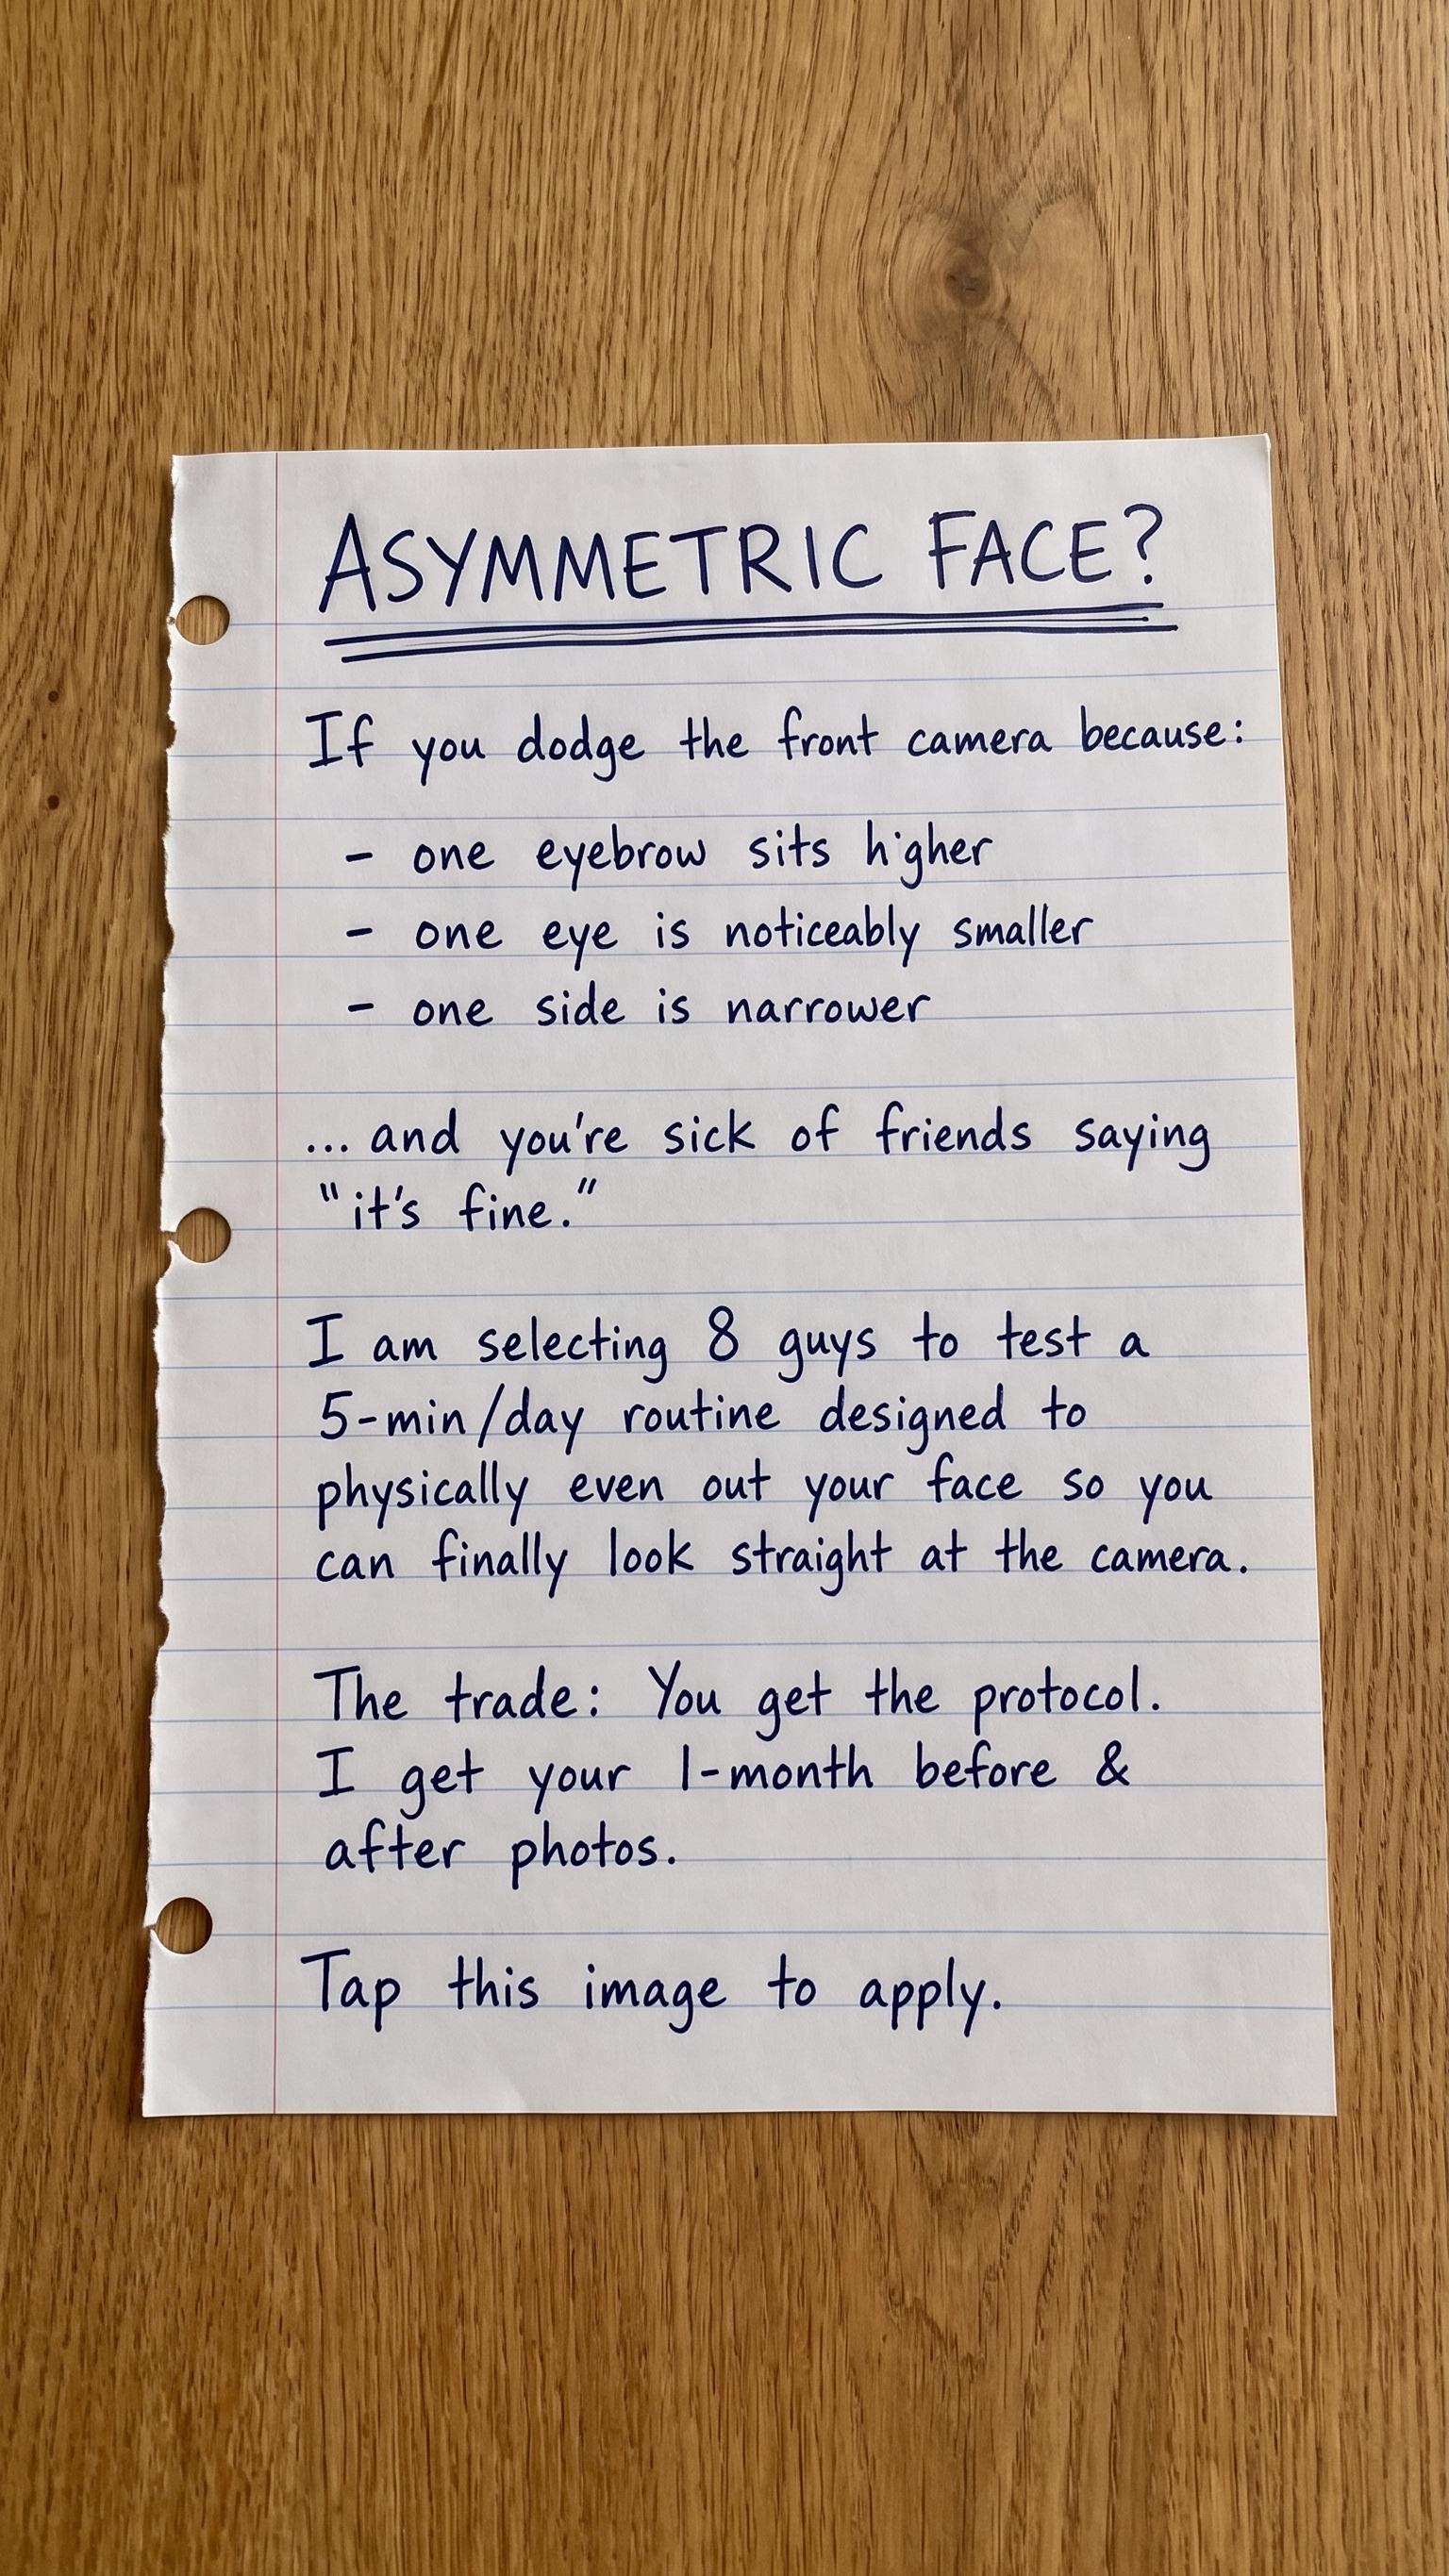 ASYMMETRIC FACE?
If you dodge the front camera because:
- one eyebrow sits higher
- one eye is noticeably smaller
- one side is narrower
... and you're sick of friends saying
"it's fine."
I am selecting 8 guys to test a
5-min/day routine designed to
physically even out your face so you
can finally look straight at the camera.
The trade: You get the protocol.
I get your 1-month before &
after photos.
Tap this image to apply.